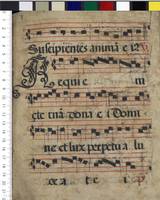 Suscipientes animā e iz
Requie m
ete
dona e i Domi
ne et lux perpetua lu
ce a t e i